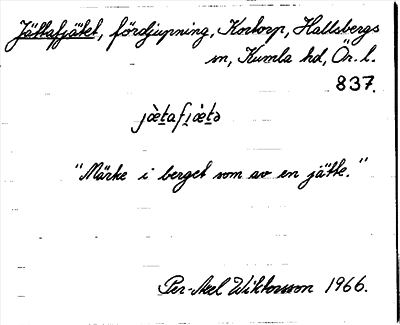 Jättafjätet, fördjupning, Kortorp, Hallsbergs
sn, Kumla hd, Ör. l.
837.
jæ̀tafjæ̀tə
"Märke i berget som av en jätte."
Per-Axel Wiktorsson 1966.